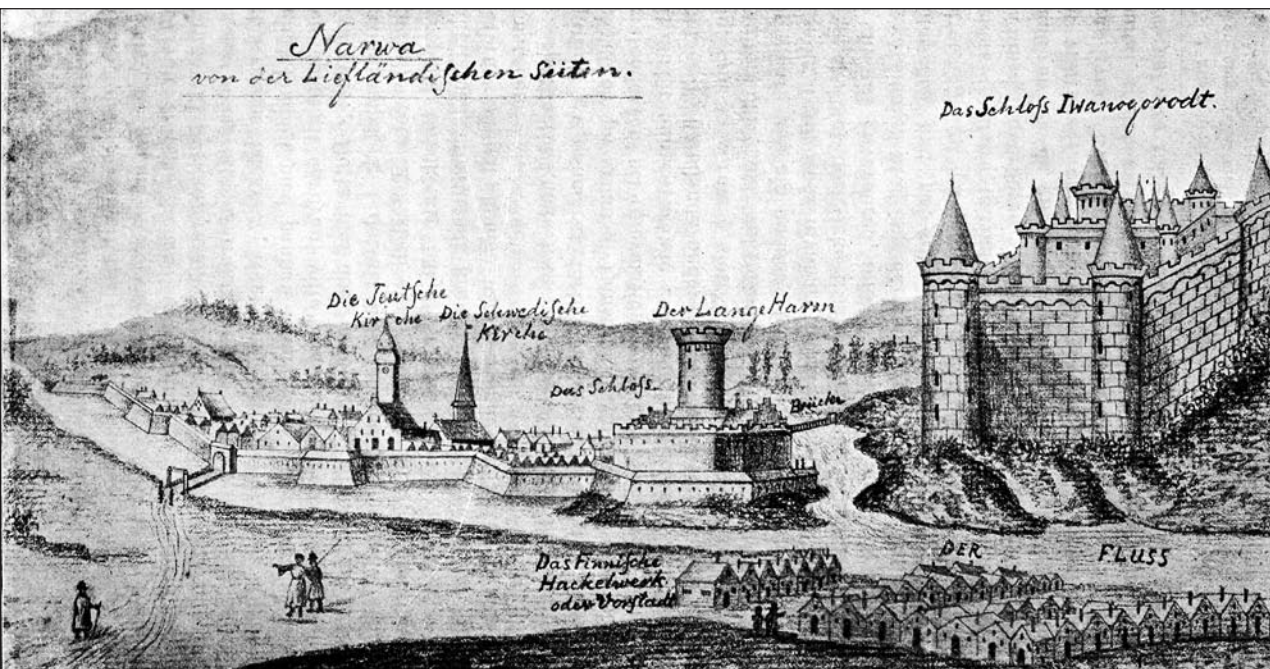 Narwa
von der Liefländischen Seiten.
Das Schloss Iwanogorodt.
Die Teutsche
Kirche
Die Schwedische
Kirche
Der Lange Harm
Das Schloss
Brücke
Das Finnische
Hackelwerk
oder Vorstadt
DER FLUSS